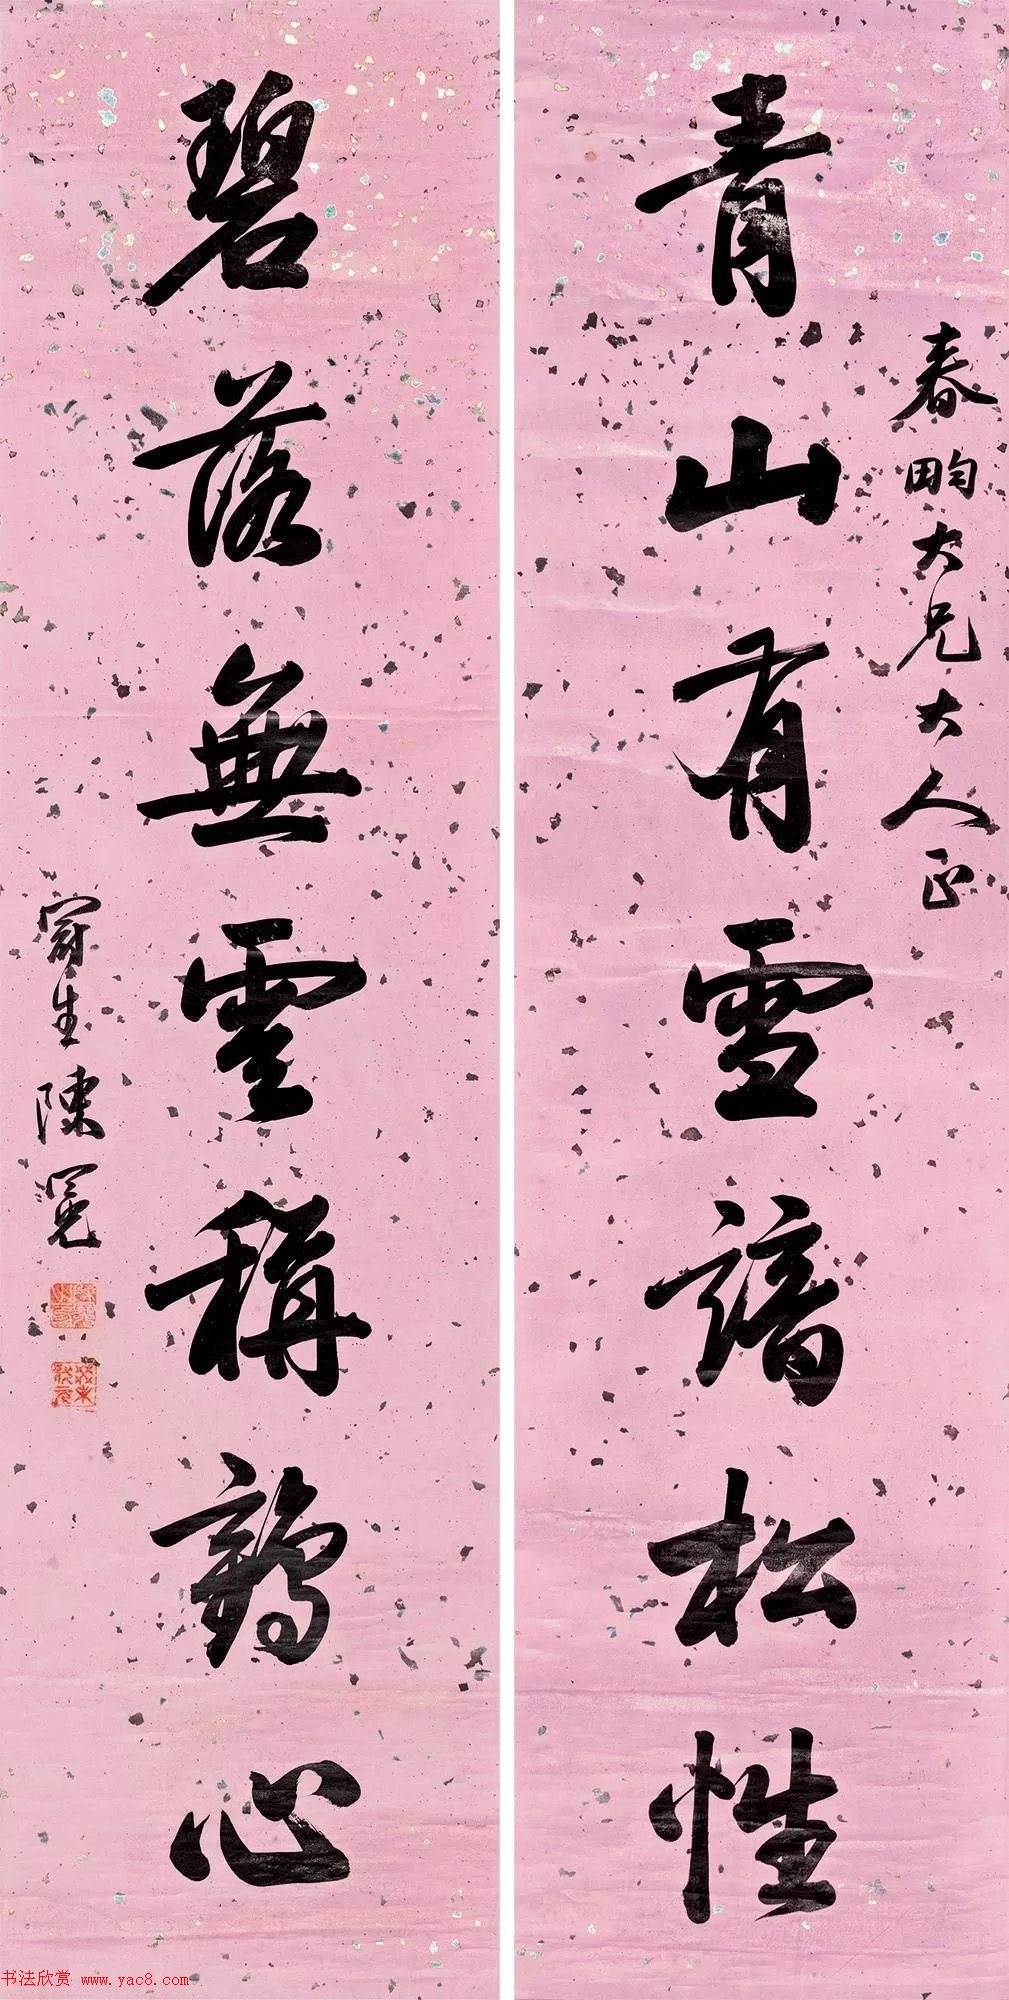 春畇大兄大人正
青山有雪谙松性
碧落無雲稱鶴心
陳冕
书法欣赏 www.yac8.com